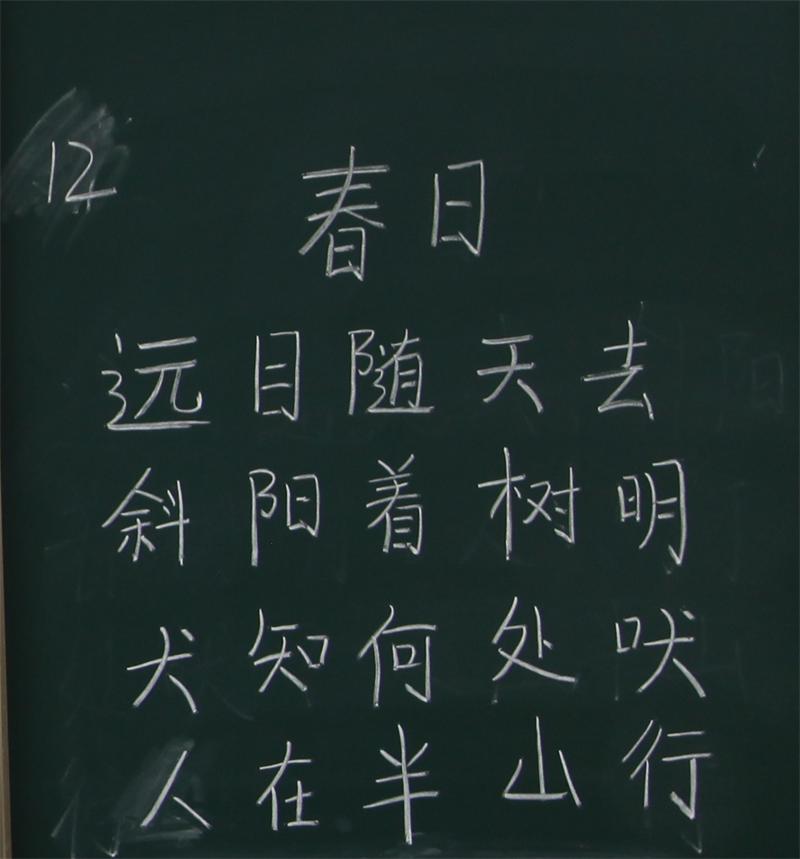 12
春日
远目随天去
斜阳着树明
犬知何处吠
人在半山行